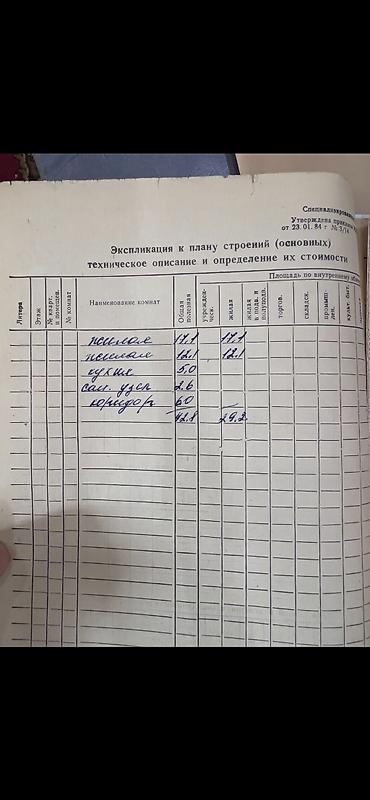 Специализирован
Утверждена приказом
от 23. 01. 84 г № 3/14
Экспликация к плану строений (основных)
техническое описание и определение их стоимости
Литера
Этаж
№ кварт. и помещен.
№ комнат
Наименование комнат
Общая полезная
Площадь по внутреннему
учрежден- ческ.
жилая
жилая в подв. и полуподв.
торгов.
складск.
промыш- лен.
культ.- быт.
жилая 17.1 17.1
жилая 12.1 12.1
кухня 5.0
сан. узел 2.6
коридор 6.0
42.8 29.2